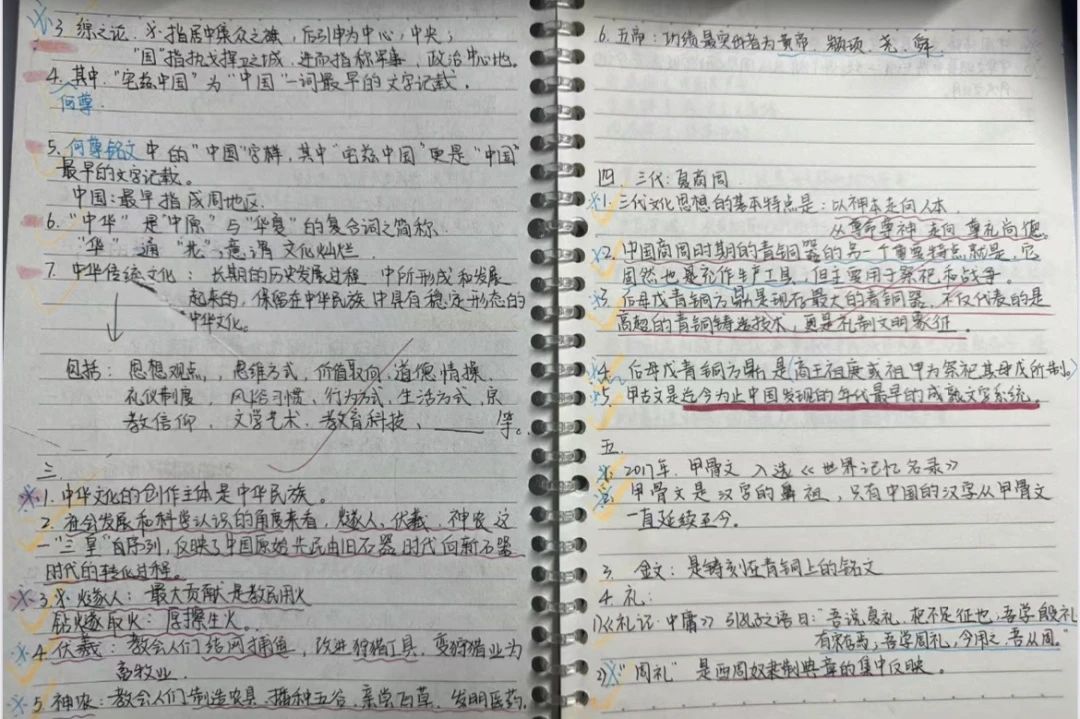 3. 综之论. 指居中集众之族，后引申为中心，中央；
"国"指执戈捍卫之城，进而指称军事、政治中心地。
4. 其中，"宅兹中国"为"中国"一词最早的文字记载.
何尊
5. 何尊铭文中的"中国"字样，其中"宅兹中国"更是"中国"
最早的文字记载。
中国：最早指成周地区.
6. "中华"是"中原"与"华夏"的复合词之简称.
"华"通"花"，意谓文化灿烂.
7. 中华传统文化：长期的历史发展过程中所形成和发展
起来的，保留在中华民族中具有稳定形态的
中华文化。
包括：思想观点，思维方式，价值取向，道德情操，
礼仪制度，风俗习惯，行为方式，生活方式，宗
教信仰，文学艺术，教育科技，等。
三.
1. 中华文化的创作主体是中华民族。
2. 社会发展和科学认识的角度来看，燧人、伏羲、神农这
一"三皇"自序列，反映了中国原始先民由旧石器时代向新石器
时代的转化过程。
3. 燧人：最大贡献是教民用火
钻燧取火：摩擦生火。
4. 伏羲：教会人们结网捕鱼，改进狩猎工具，变狩猎业为
畜牧业.
5. 神农：教会人们制造农具，播种五谷，亲尝百草，发明医药.
6. 五帝：功绩最突出者为黄帝、颛顼、尧、舜.
四 三代：夏商周.
1. 三代文化思想的基本特点是：以神本走向人本.
从尊命尊神走向尊礼尚德。
2. 中国商周时期的青铜器的另一个重要特点就是，它
固然也是充作生产工具，但主要用于祭祀和战争.
3. 后母戊青铜方鼎是现存最大的青铜器，不仅代表的是
高超的青铜铸造技术，更是礼制文明象征.
4. 后母戊青铜方鼎是(商王祖庚或祖甲为祭祀其母戊所制。)
5. 甲古文是迄今为止中国发现的年代最早的成熟文字系统.
五.
1. 2017年，甲骨文入选《世界记忆名录》
2. 甲骨文是汉字的鼻祖，只有中国的汉字从甲骨文
一直延续至今。
3. 金文：是铸刻在青铜上的铭文
4. 礼：
1)《礼记·中庸》引孔子之语曰："吾说夏礼，杞不足征也；吾学殷礼
有宋存焉；吾学周礼，今用之，吾从周。"
2)"周礼"是西周奴隶制典章的集中反映。